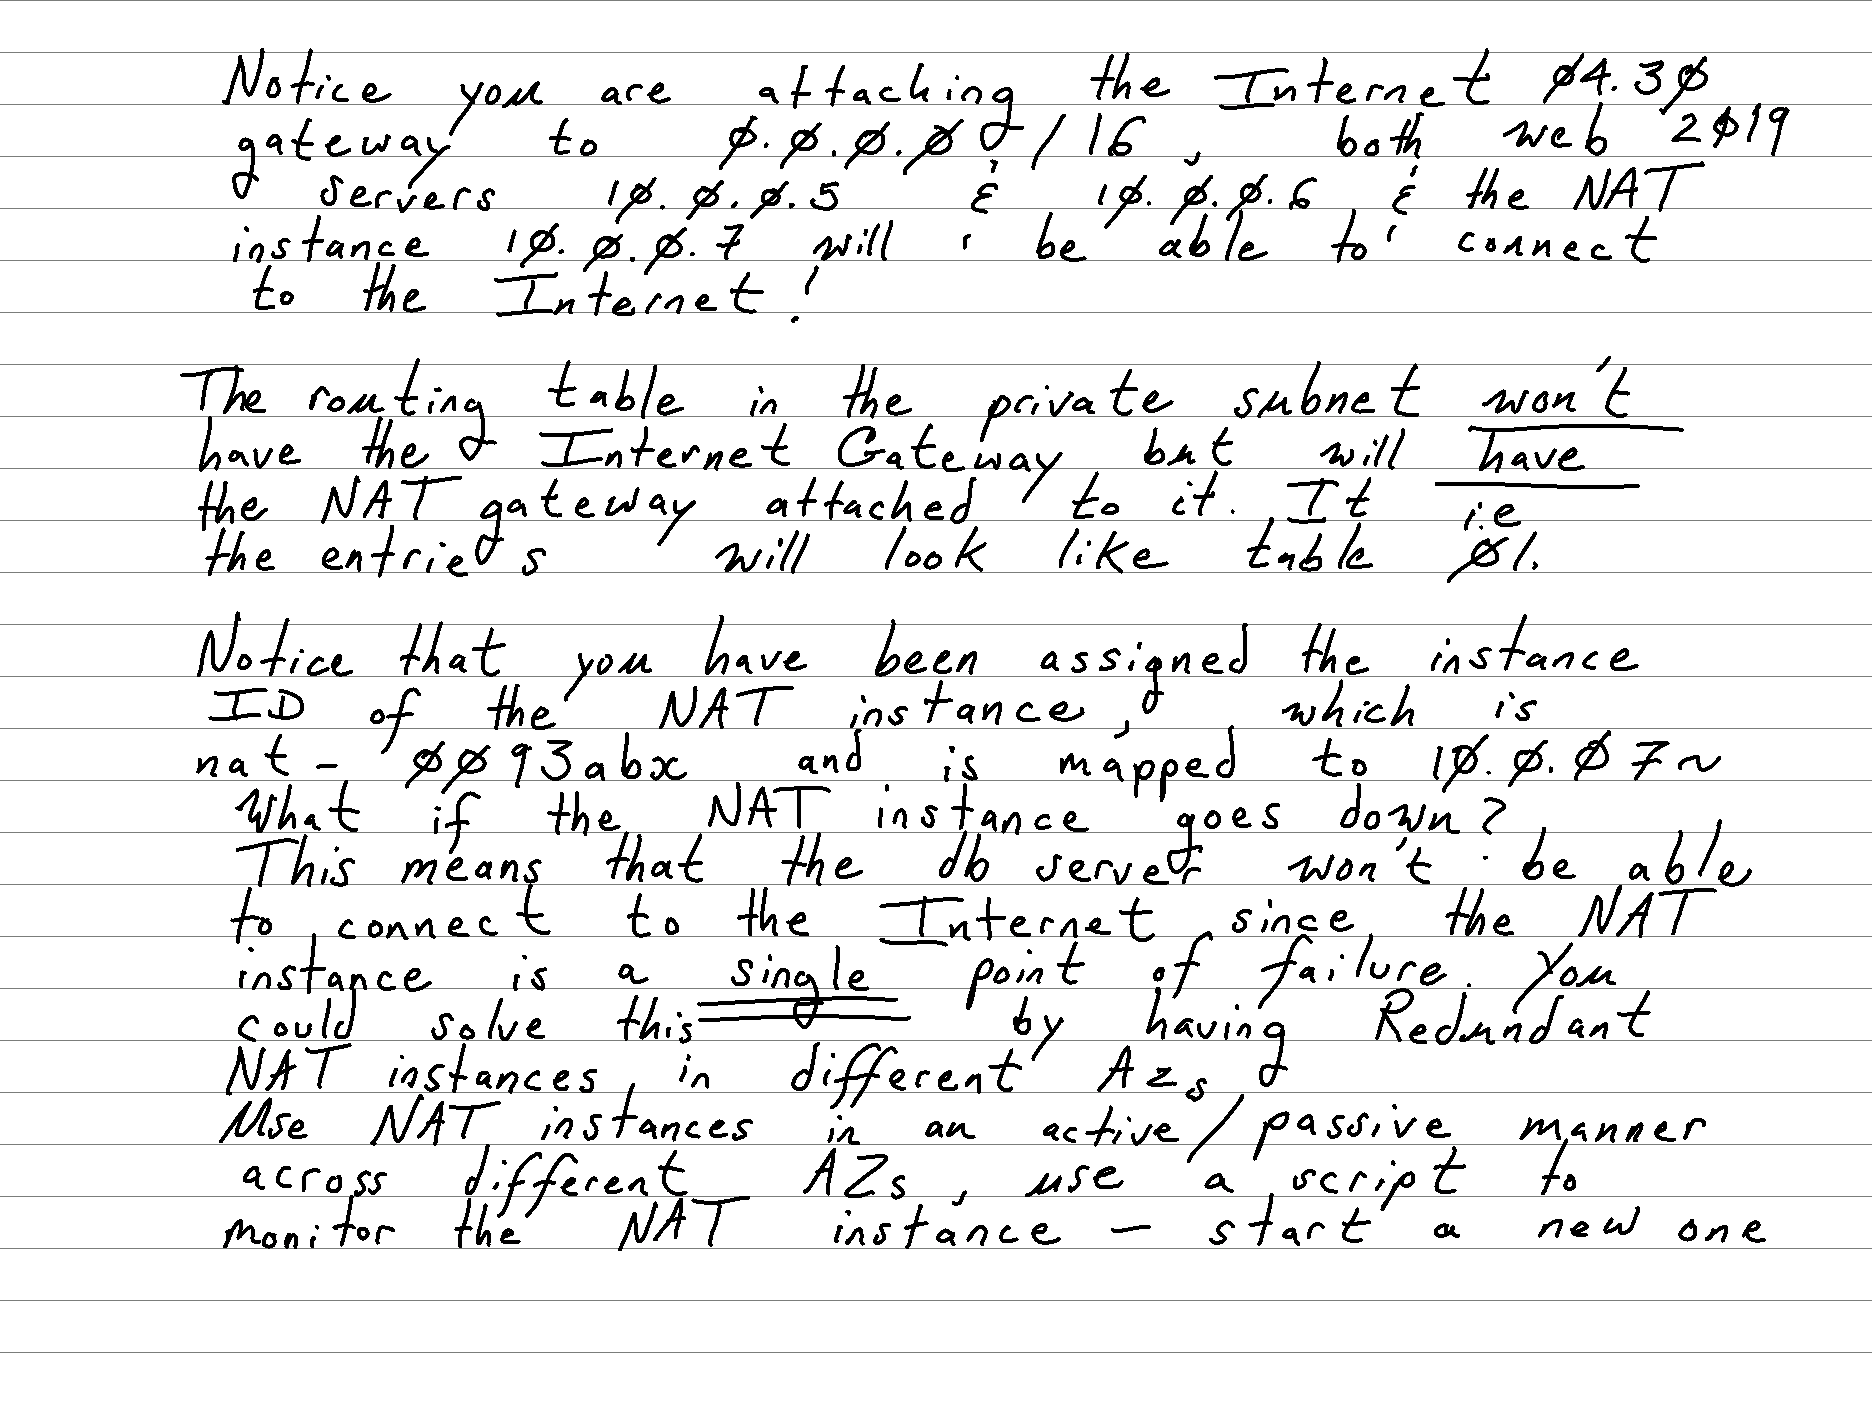 Notice you are attaching the Internet 04.30
gateway to 0.0.0.0/16, both web 2019
servers 10.0.0.5 & 10.0.0.6 & the NAT
instance 10.0.0.7 will be able to connect
to the Internet!
The routing table in the private subnet won't
have the Internet Gateway but will have
the NAT gateway attached to it. It i.e
the entries will look like table 01.
Notice that you have been assigned the instance
ID of the NAT instance, which is
nat-0093abx and is mapped to 10.0.07~
What if the NAT instance goes down?
This means that the db server won't be able
to connect to the Internet since the NAT
instance is a single point of failure. You
could solve this by having Redundant
NAT instances in different AZs
Use NAT instances in an active/passive manner
across different AZs, use a script to
monitor the NAT instance - start a new one